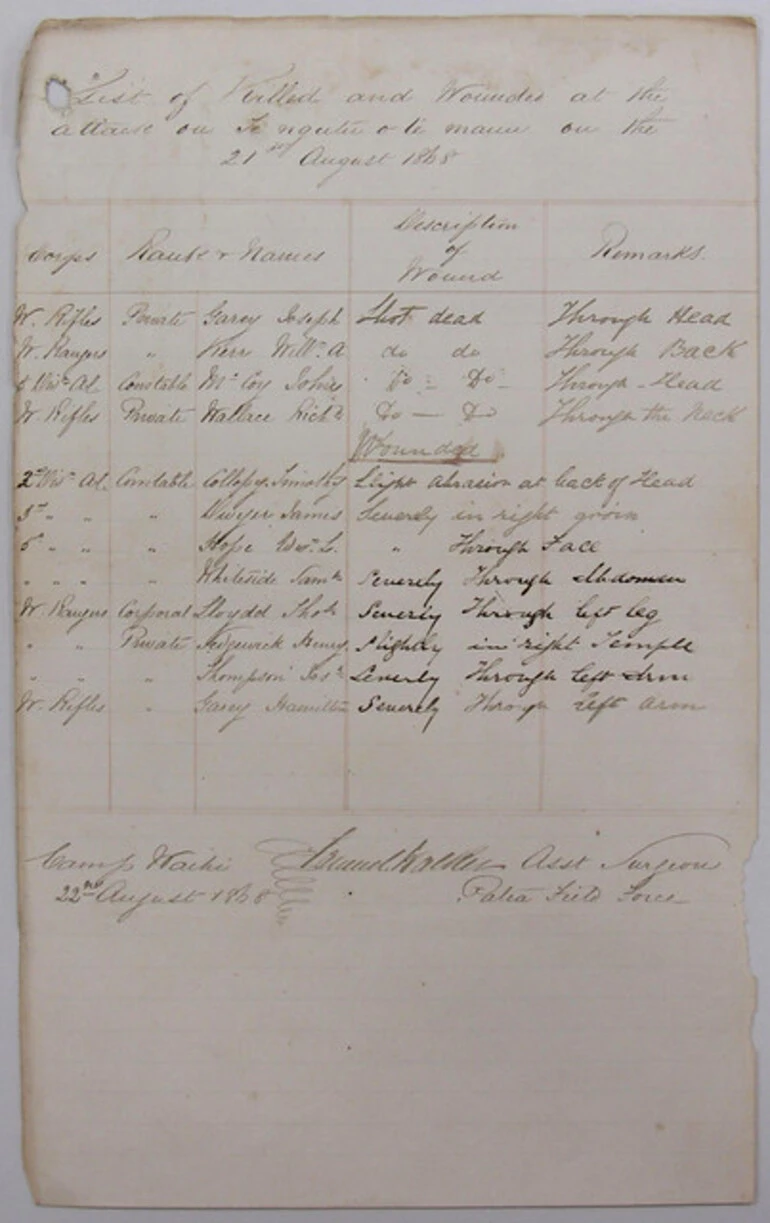 List of Killed and Wounded at the
attack on Te ngutu o te manu on the
21st August 1868
Corps Rank & Names Description of Wound Remarks.
W. Rifles Private Garey Joseph Shot dead Through Head
W. Rangers " Kerr Willm A do do Through Back
5 Divn A.C. Constable McCoy John Do - Do - Through - Head
W. Rifles Private Wallace Richd Do — Do Through the Neck
Wounded
2nd Divn A.C. Constable Collopy Timothy Slight abrasion at back of Head
3d " " " Dwyer James Severely in right groin
5 " " " Hope Wm L. " Through Face
" " " " Whiteside Saml Severely Through Abdomen
W. Rangers Corporal Lloydd Thos Severely Through left leg
" " Private Hedgewick Henry. Slightly in right Temple
" " " Thompson Jas Severely Through left Arm
W. Rifles " Garey Hamilton Severely Through Left arm
Camp Waihi Samuel Walker Asst Surgeon
22nd August 1868 Patea Field Force